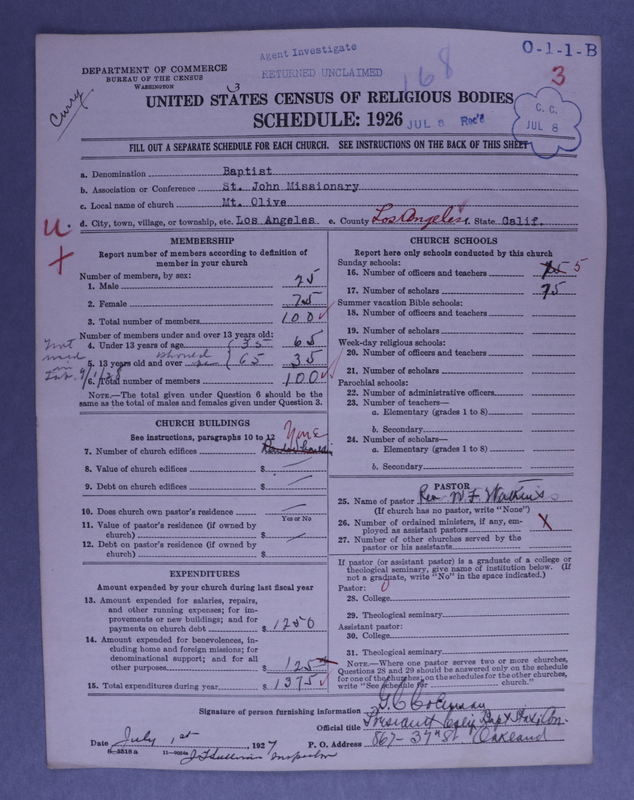 Agent Investigate
O-1-1-B
DEPARTMENT OF COMMERCE
BUREAU OF THE CENSUS
WASHINGTON
RETURNED UNCLAIMED
168
3
3
Curry
UNITED STATES CENSUS OF RELIGIOUS BODIES
SCHEDULE: 1926
JUL 8 Rec'd
C. C.
JUL 8
FILL OUT A SEPARATE SCHEDULE FOR EACH CHURCH. SEE INSTRUCTIONS ON THE BACK OF THIS SHEET
a. Denomination Baptist
b. Association or Conference St. John Missionary
c. Local name of church Mt. Olive
d. City, town, village, or township, etc. Los Angeles e. County Los Angeles f. State Calif.
U.
X
MEMBERSHIP
Report number of members according to definition of
member in your church
Number of members, by sex:
1. Male 25
2. Female 75
3. Total number of members 100
Number of members under and over 13 years old:
4. Under 13 years of age (35 65
5. 13 years old and over should (65 35
6. Total number of members 100
NOTE.—The total given under Question 6 should be
same as the total of males and females given under Question 3.
CHURCH BUILDINGS
See instructions, paragraphs 10 to 12
7. Number of church edifices None
8. Value of church edifices $
9. Debt on church edifices $
10. Does church own pastor's residence
Yes or No
11. Value of pastor's residence (if owned by
church) $
12. Debt on pastor's residence (if owned by
church) $
EXPENDITURES
Amount expended by your church during last fiscal year
13. Amount expended for salaries, repairs,
and other running expenses; for im-
provements or new buildings; and for
payments on church debt $ 1250
14. Amount expended for benevolences, in-
cluding home and foreign missions; for
denominational support; and for all
other purposes $ 125
15. Total expenditures during year $ 1375
CHURCH SCHOOLS
Report here only schools conducted by this church
Sunday schools:
16. Number of officers and teachers 5
17. Number of scholars 75
Summer vacation Bible schools:
18. Number of officers and teachers
19. Number of scholars
Week-day religious schools:
20. Number of officers and teachers
21. Number of scholars
Parochial schools:
22. Number of administrative officers
23. Number of teachers—
a. Elementary (grades 1 to 8)
b. Secondary
24. Number of scholars—
a. Elementary (grades 1 to 8)
b. Secondary
PASTOR
25. Name of pastor Rev W. F. Watkins
(If church has no pastor, write "None")
26. Number of ordained ministers, if any, em-
ployed as assistant pastors X
27. Number of other churches served by the
pastor or his assistants
If pastor (or assistant pastor) is a graduate of a college or
theological seminary, give name of institution below. (If
not a graduate, write "No" in the space indicated.)
Pastor: 0
28. College
29. Theological seminary
Assistant pastor:
30. College
31. Theological seminary
NOTE.—Where one pastor serves two or more churches,
Questions 28 and 29 should be answered only on the schedule
for one of the churches; on the schedules for the other churches,
write "See schedule for church."
Signature of person furnishing information G. C. Coleman
Official title President
Date July 1st, 1927 P. O. Address 867-37th St Oakland
8-3518a 11-9084a Inspector